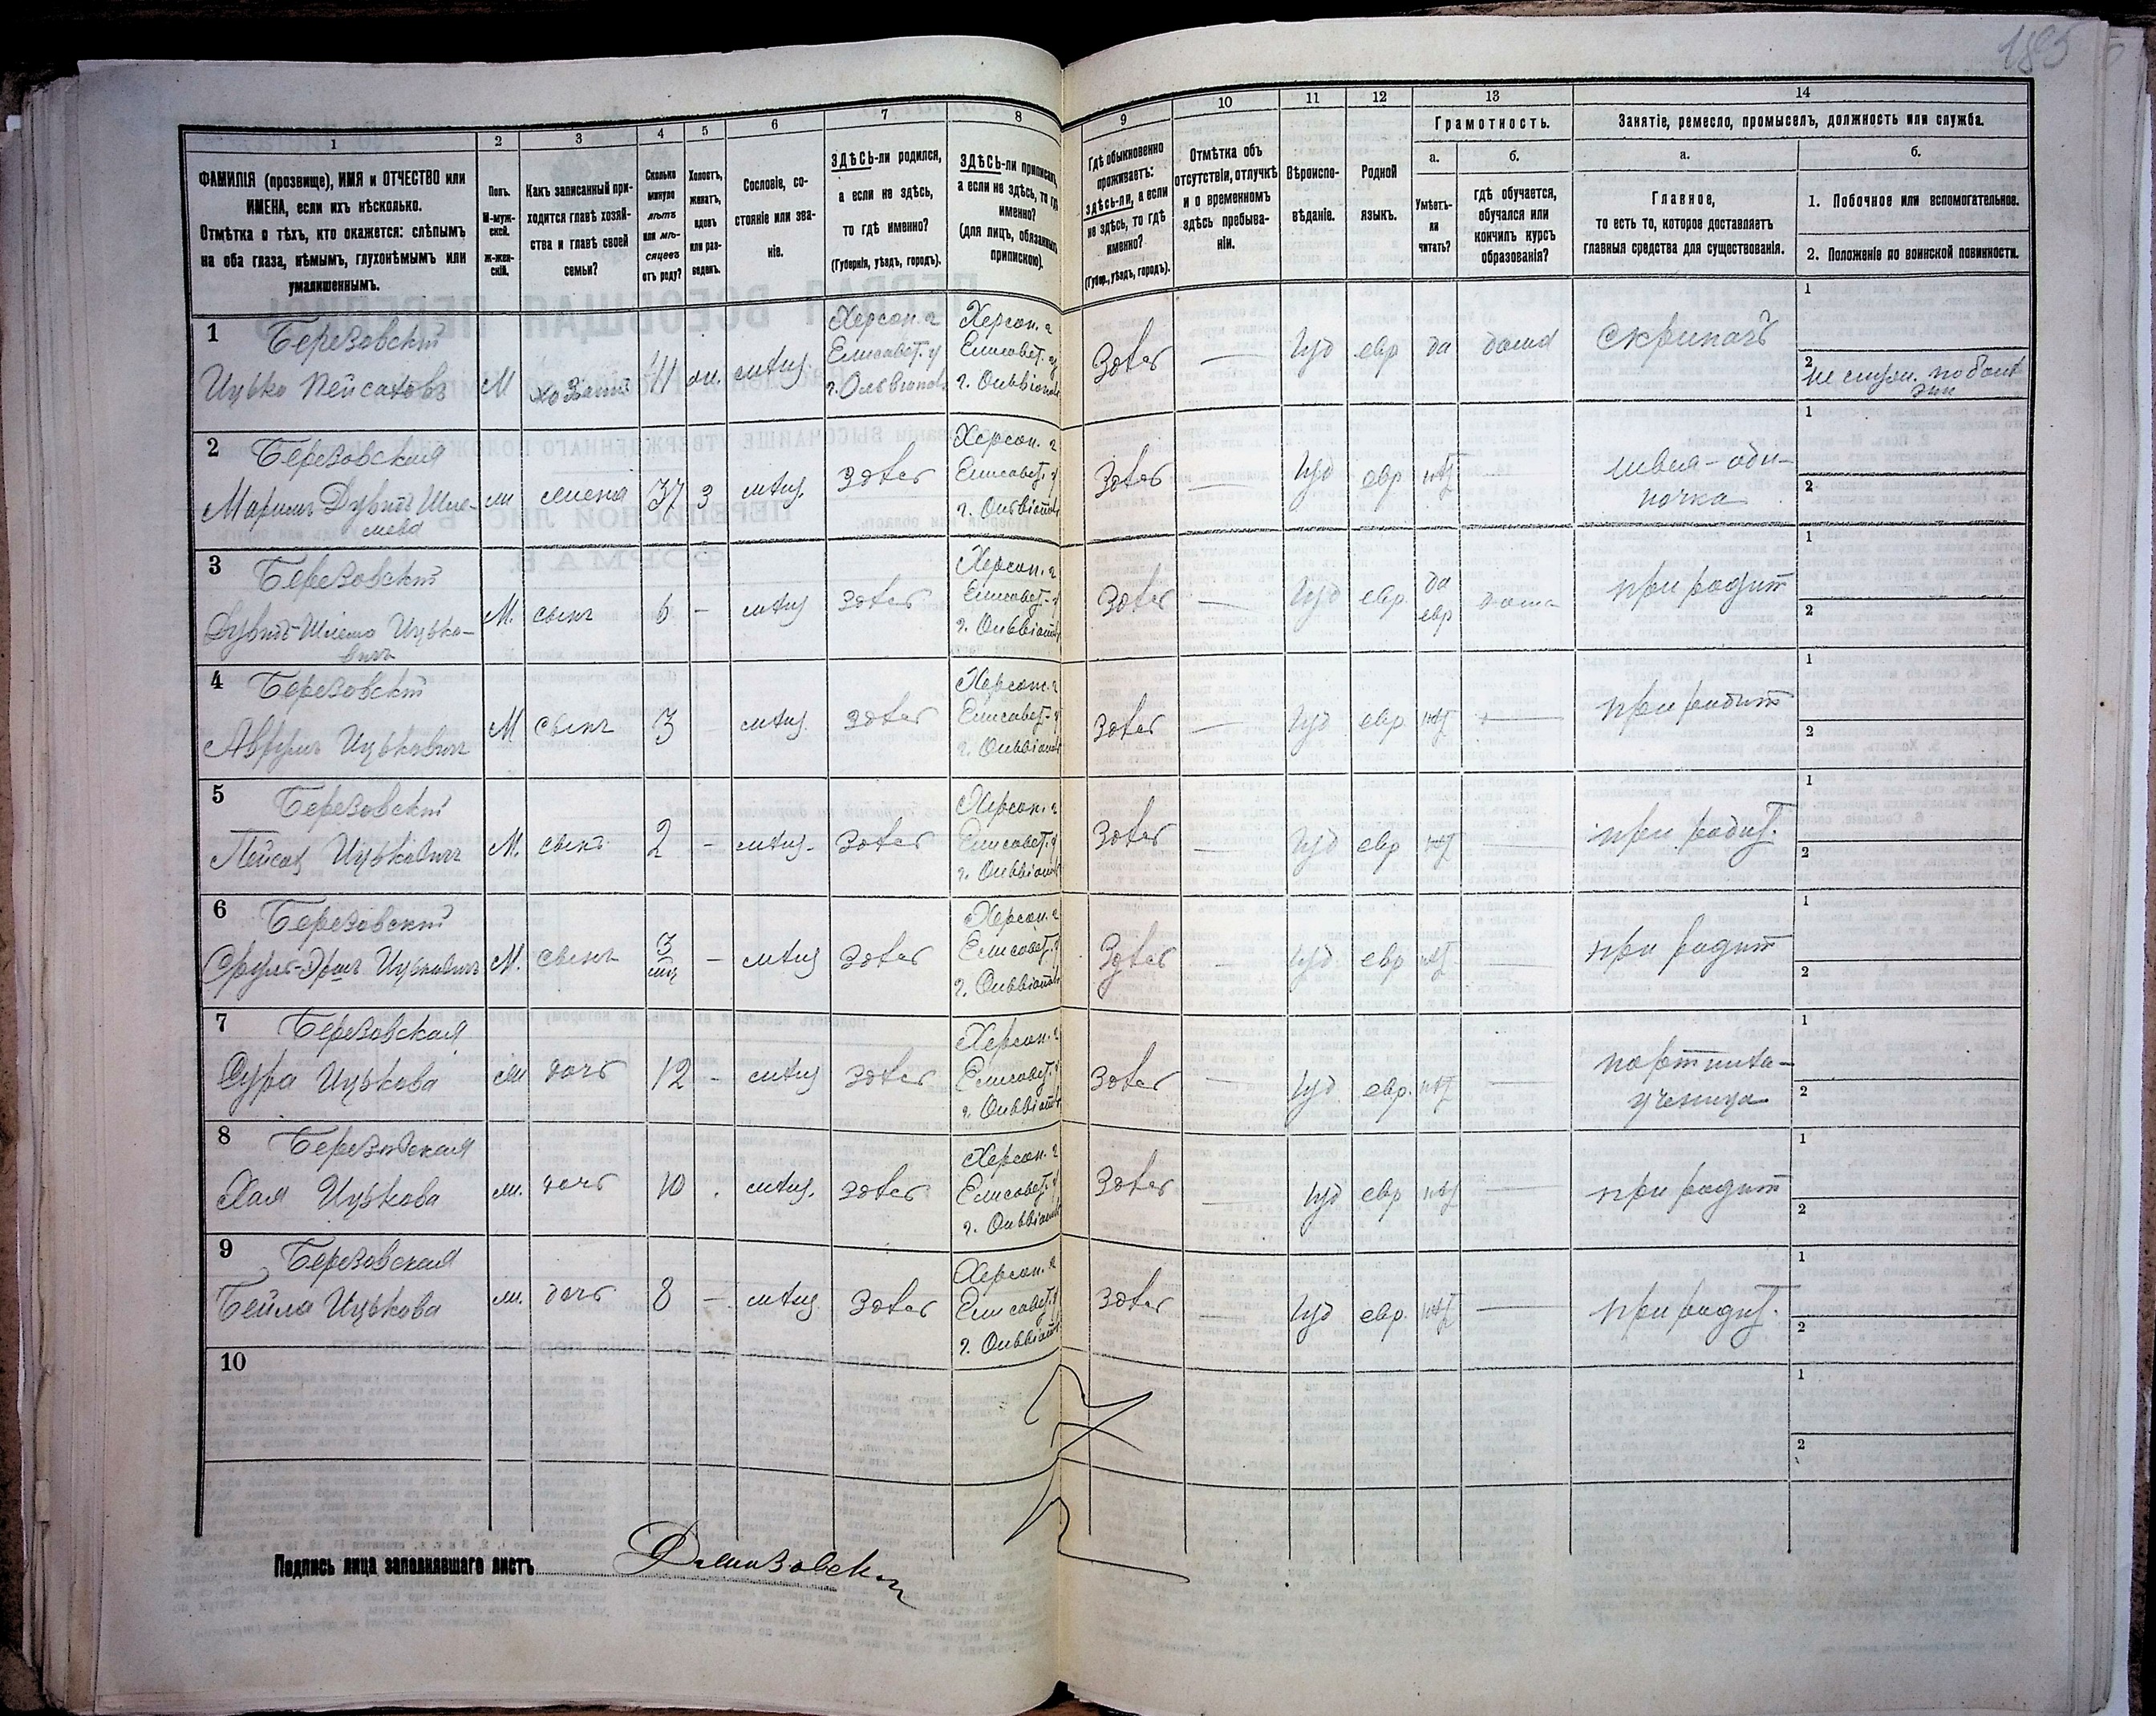 185
1
2
3
4
5
6
7
8
9
10
11
12
13
14
ФАМИЛІЯ (прозвище), ИМЯ и ОТЧЕСТВО или
ИМЕНА, если ихъ нѣсколько.
Отмѣтка о тѣхъ, кто окажется: слѣпымъ
на оба глаза, нѣмымъ, глухонѣмымъ или
умалишеннымъ.
Полъ.
М-муж-
ской.
Ж-жен-
скій.
Какъ записанный при-
ходится главѣ хозяй-
ства и главѣ своей
семьи?
Сколько
минуло
лѣтъ
или мѣ-
сяцевъ
отъ роду?
Холостъ,
женатъ,
вдовъ
или раз-
веденъ.
Сословіе, со-
стояніе или зва-
ніе.
ЗДѢСЬ-ли родился,
а если не здѣсь,
то гдѣ именно?
(Губернія, уѣздъ, городъ).
ЗДѢСЬ-ли приписанъ,
а если не здѣсь, то гдѣ
именно?
(для лицъ, обязанныхъ
припискою).
Гдѣ обыкновенно
проживаетъ:
здѣсь-ли, а если
не здѣсь, то гдѣ
именно?
(Губер., уѣздъ, городъ).
Отмѣтка объ
отсутствіи, отлучкѣ
и о временномъ
здѣсь пребыва-
ніи.
Вѣроиспо-
вѣданіе.
Родной
языкъ.
Грамотность.
а.
Умѣетъ-
ли
читать?
б.
Гдѣ обучается,
обучался или
кончилъ курсъ
образованія?
Занятіе, ремесло, промыселъ, должность или служба.
а.
Главное,
то есть то, которое доставляетъ
главныя средства для существованія.
б.
1. Побочное или вспомогательное.
2. Положеніе по воинской повинности.
1 Березовскій
Ицько Пейсаховъ
М
хозяинъ
41
ж.
мѣщ.
Херсон. г
Елисавет. у
г. Ольвіополь
Херсон. г
Елисавет. у
г. Ольвіополь
здѣсь
—
Іуд
евр
да
дома
скрипачъ
1
2
2 Березовская
Маріимъ Дувидъ Шле-
мева
ж
жена
37
З
мѣщ.
здѣсь
Херсон. г
Елисавет. у
г. Ольвіополь
здѣсь
—
Іуд
евр
нѣт
швея-оди-
ночка
1
2
3 Березовскій
Дувидъ-Шлема Ицько-
вичъ
М.
сынъ
6
-
мѣщ
здѣсь
Херсон. г
Елисавет. у
г. Ольвіополь
здѣсь
—
Іуд
евр.
да
евр
дома
при родит
1
2
4 Березовскій
Аврумъ Ицьковичъ
М
сынъ
3
мѣщ.
здѣсь
Херсон. г
Елисавет. у
г. Ольвіополь
здѣсь
—
Іуд
евр
нѣт
—
при родит
1
2
5 Березовскій
Пейсах Ицьковичъ
М.
сынъ
2
-
мѣщ.
здѣсь
Херсон. г
Елисавет. у
г. Ольвіополь
здѣсь
—
Іуд
евр
нѣт
—
при родит.
1
2
6 Березовскій
Ицьковичъ
М.
сынъ
3
мц
-
мѣщ
здѣсь
Херсон. г
Елисавет. у
г. Ольвіополь
здѣсь
—
Іуд
евр
нѣт
—
при родит
1
2
7 Березовская
Сура Ицькова
ж
дочь
12
-
мѣщ
здѣсь
Херсон. г
Елисавет. у
г. Ольвіополь
здѣсь
—
Іуд
евр.
нѣт
—
портниха-
ученица
1
2
8 Березовская
Хая Ицькова
ж.
дочь
10
мѣщ.
здѣсь
Херсон. г
Елисавет. у
г. Ольвіополь
здѣсь
—
Іуд
евр
нѣт
—
при родит
1
2
9 Березовская
Бейла Ицькова
ж.
дочь
8
—
мѣщ.
здѣсь
Херсон. г
Елисавет. у
г. Ольвіополь
здѣсь
—
Іуд
евр.
нѣт
—
при родит.
1
2
10
1
2
Подпись лица заполнявшаго листъ